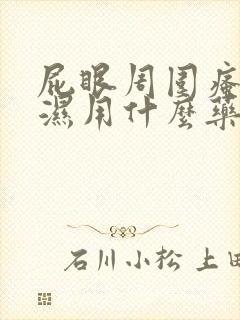 屁眼周圍瘙
濕用什麼藥
石川小松 上田